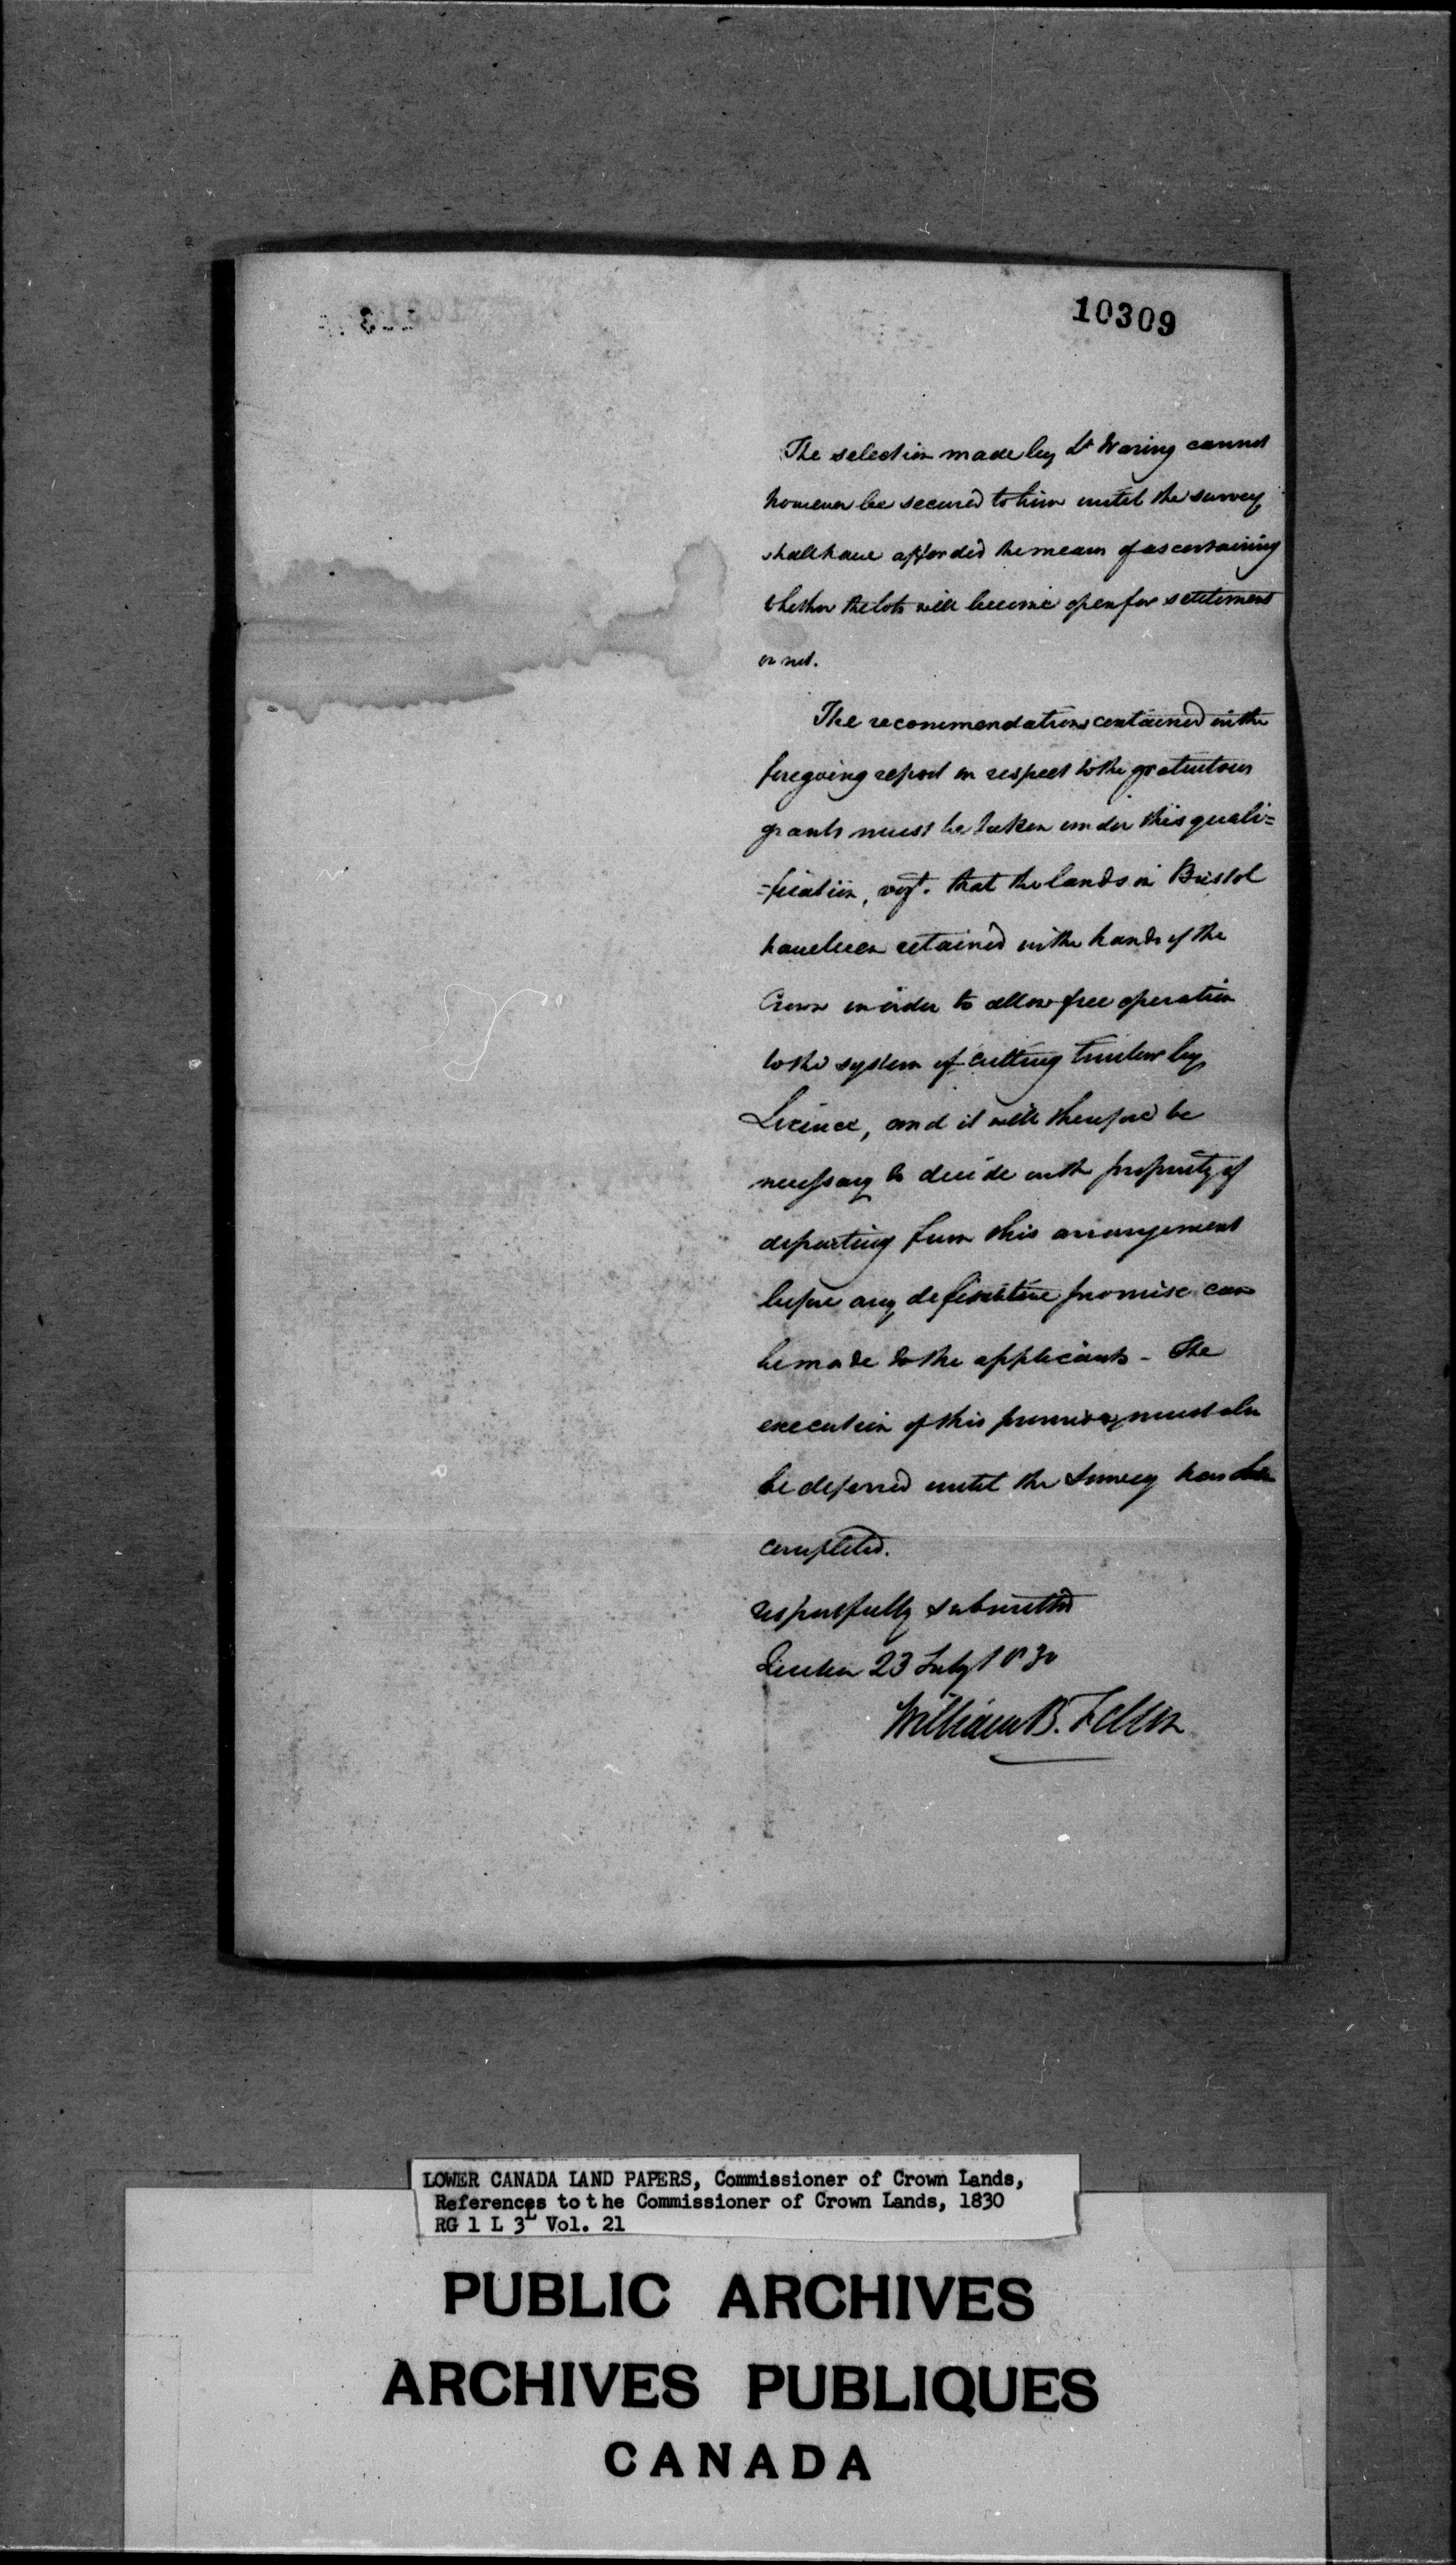 10309
The selection made by Lt Waring cannot
however be secured to him until the survey
shall have afforded the means of ascertaining
whether the lots will become open for settlement
or not.
The recommendations contained in the
foregoing report in respect to the gratuitous
grants must be taken under this quali=
=fication, vizt. that the lands in Bristol
have been retained in the hands of the
Crown in order to allow free operation
to the system of cutting timber by
Licence, and it will therefore be
necessary to decide on the propriety of
departing from this arrangement
before any definitive promise can
be made to the applicants - The
execution of this promise must also
be deferred until the Survey has been
completed.
respectfully submitted
Quebec 23 July 1830
William B. Felton
LOWER CANADA LAND PAPERS, Commissioner of Crown Lands,
References to the Commissioner of Crown Lands, 1830
RG 1 L 3L Vol. 21
PUBLIC ARCHIVES
ARCHIVES PUBLIQUES
CANADA